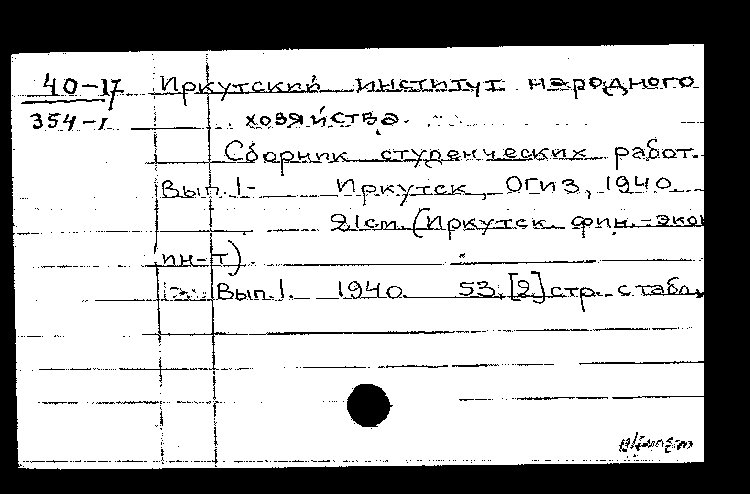 40-17 Иркутский институт народного
354-1 хозяйства.
Сборник студенческих работ.
Вып. 1- Иркутск, ОГИЗ, 1940.
21см. (Иркутск. фин.-экон
ин-т).
Вып. 1. 1940. 53, [2] стр. с табл.,